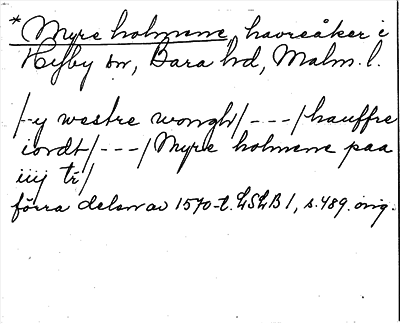 * Myre holmene, havreåker i
Hyby sn, Bara hd, Malm. l.
/-y westre wongh/---/hauffre
iordt/---/Myre holmene paa
iiij tr/
förra delen av 1570-t. LSLB 1, s. 489. orig.